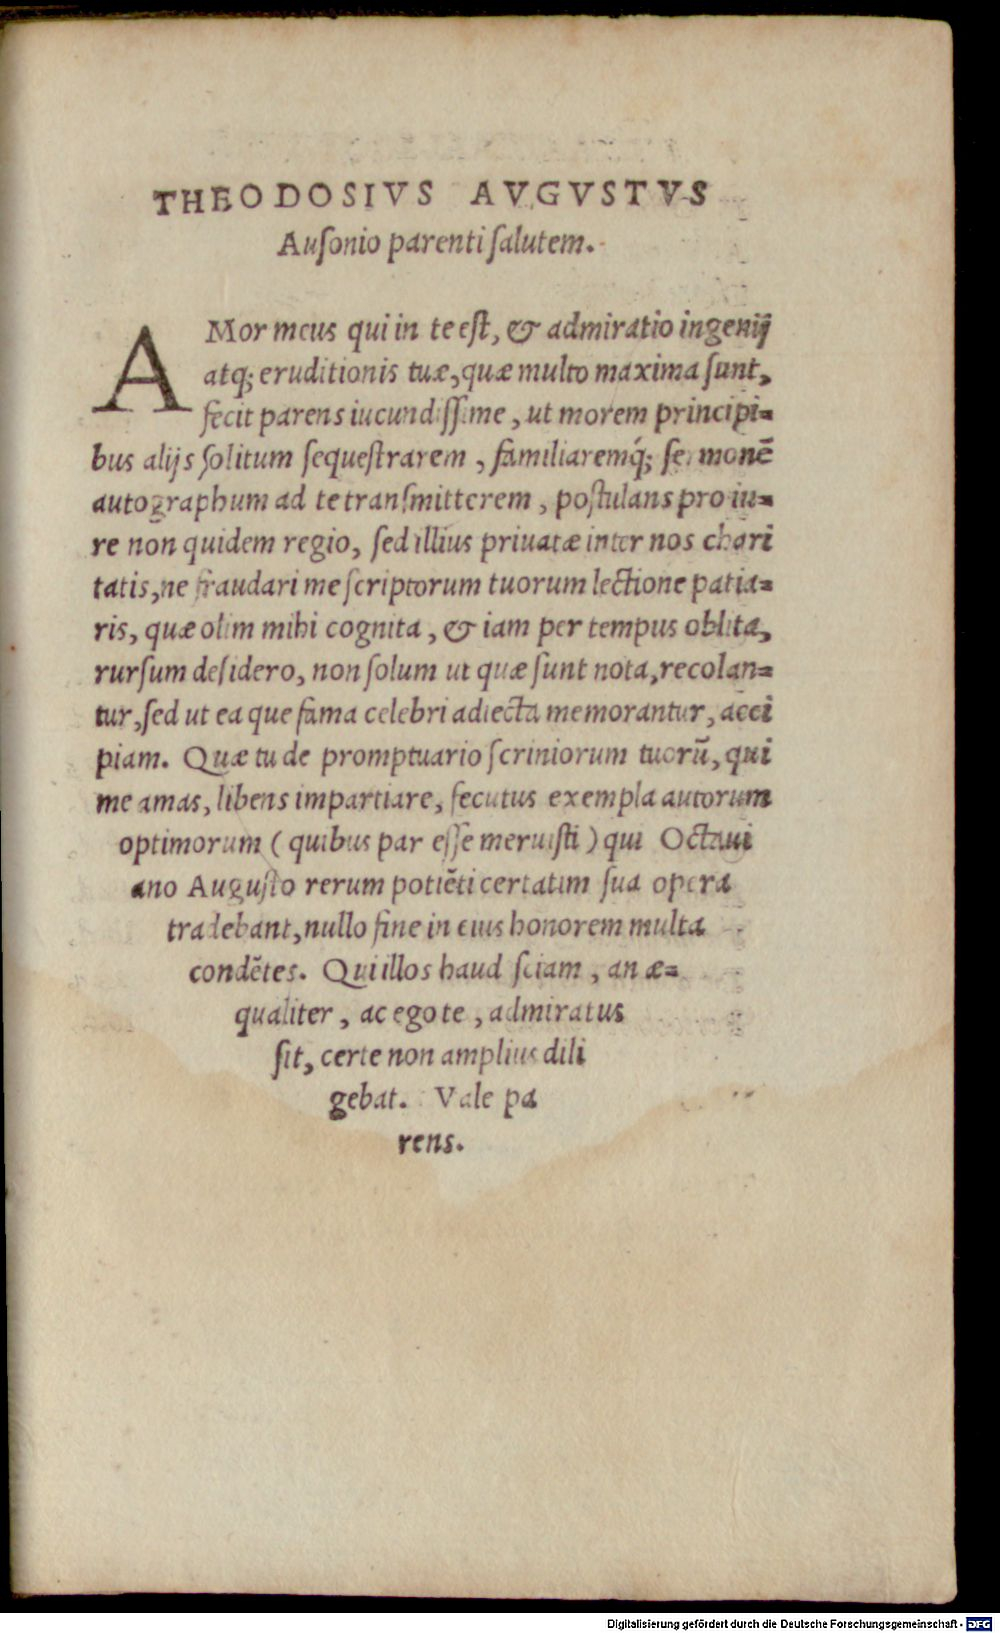 THEODOSIVS AVGVSTVS
Auſonio parenti ſalutem.
AMor meus qui in te eſt, & admiratio ingenij
atq; eruditionis tuæ, quæ multo maxima ſunt,
fecit parens iucundiſſime, ut morem principi=
bus alijs ſolitum ſequeſtrarem, familiaremq́; ſermonē
autographum ad te tranſmitterem, poſtulans pro iu=
re non quidem regio, ſed illius priuatæ inter nos chari
tatis, ne fraudari me ſcriptorum tuorum lectione patia=
ris, quæ olim mihi cognita, & iam per tempus oblita,
rurſum deſidero, non ſolum ut quæ ſunt nota, recolan=
tur, ſed ut ea que fama celebri adiecta memorantur, acci
piam. Quæ tu de promptuario ſcriniorum tuorū, qui
me amas, libens impartiare, ſecutus exempla autorum
optimorum (quibus par eſſe meruiſti) qui Octaui
ano Auguſto rerum potiēti certatim ſua opera
tradebant, nullo fine in eius honorem multa
condētes. Qui illos haud ſciam, an æ=
qualiter, ac ego te, admiratus
ſit, certe non amplius dili
gebat. Vale pa
rens.
Digitalisierung gefördert durch die Deutsche Forschungsgemeinschaft - DFG